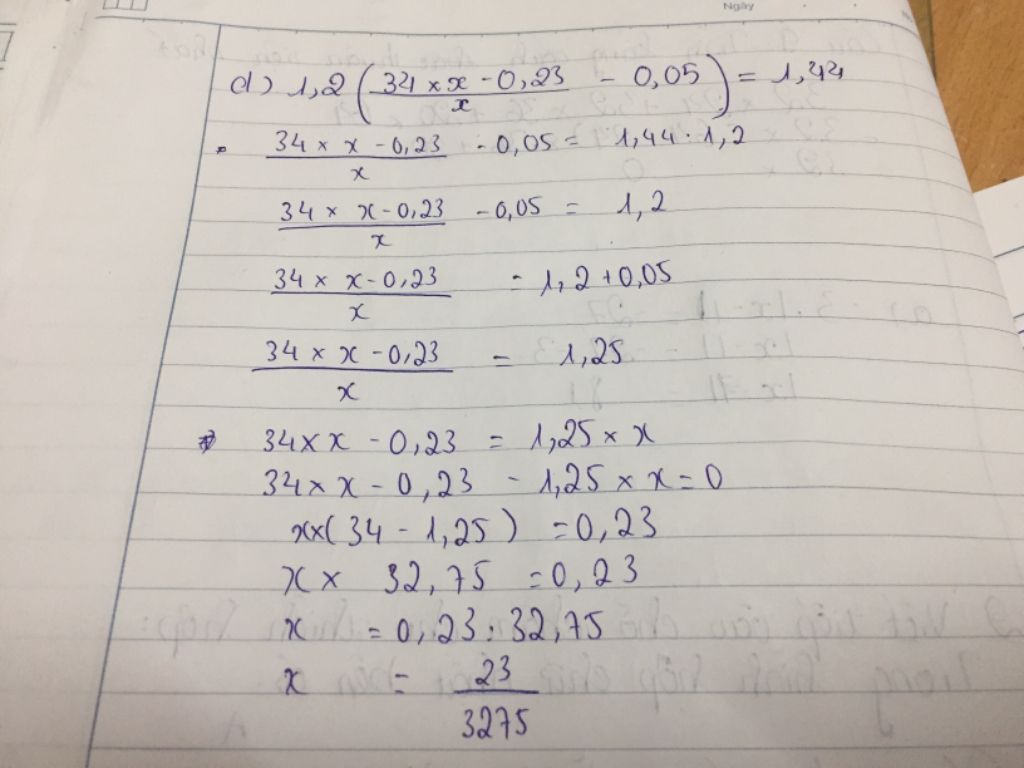 Ngày
d) 1,2 ( (34 × x - 0,23)/x - 0,05 ) = 1,44
(34 × x - 0,23)/x - 0,05 = 1,44 : 1,2
(34 × x - 0,23)/x - 0,05 = 1,2
(34 × x - 0,23)/x = 1,2 + 0,05
(34 × x - 0,23)/x = 1,25
34 × x - 0,23 = 1,25 × x
34 × x - 0,23 - 1,25 × x = 0
x × ( 34 - 1,25 ) = 0,23
x × 32,75 = 0,23
x = 0,23 : 32,75
x = 23/3275